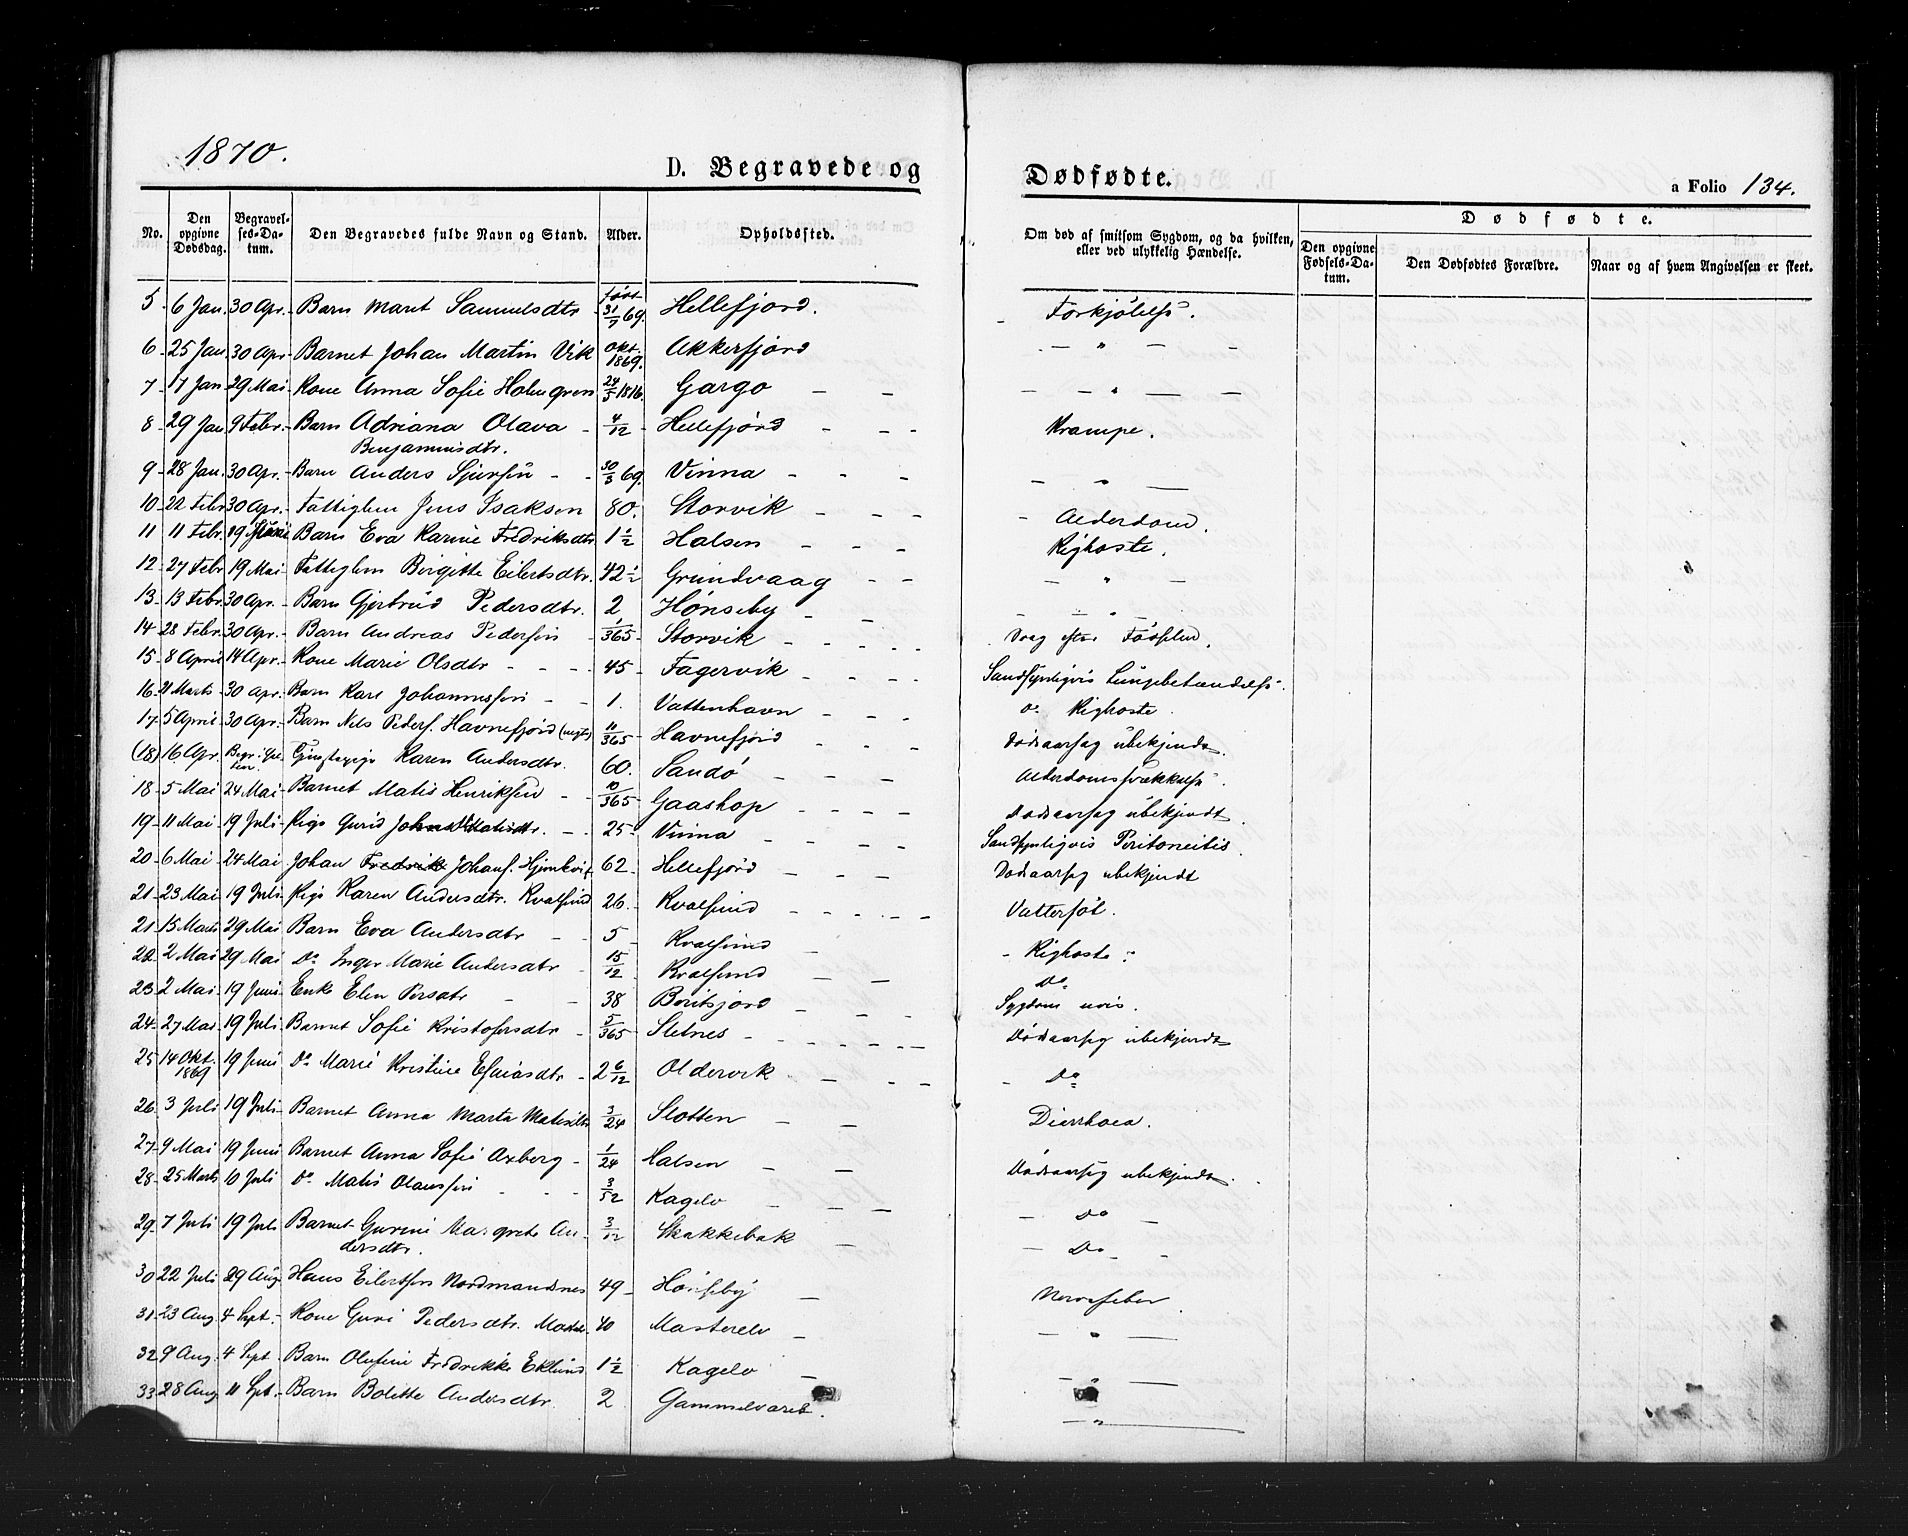 1870.
D. Begravede og
Dødfødte.
a Folio 134.
No.
Den opgivne Dødsdag.
Begravelses-Datum.
Den Begravedes fulde Navn og Stand.
Alder.
Opholdssted.
Om død af smitsom Sygdom, og da hvilken, eller ved ulykkelig Hændelse.
Dødfødte.
Den opgivne Fødsels-Datum.
Den Dødfødtes Forældre.
Naar og af hvem Angivelsen er skeet.
5 6 Jan. 30 Apr. Barn Maret Samuelsdtr født 31/7 69. Hellefjord. Forkjølelse.
6 25 Jan 30 Apr. Barnet Johan Martin Vik Okt. 1869. Akkerfjord — " — —
7 17 Jan 29 Mai Kone Anna Sofie Holmgren 24/5 1816. Gargo — " — —
8 29 Jan 9 Febr. Barn Adriana Olava 4/12 Hellefjord Krampe.
Benjaminsdtr.
9 28 Jan. 30 Apr. Barn Anders 30/3 69. Vinna — " —
10 22 Febr 30 Apr. Fattiglem Jens Isaksen 80. Storvik Alderdom.
11 11 Febr. 29 Barn Eva Karine Fredriksdtr 1 1/2 Halsen Kighoste.
12 27 Febr 19 Mai Fattiglem Birgitte Eilertsdtr. 42 1/2 Grundvaag — " —
13 13 Febr. 30 Apr. Barn Gjertrud Pedersdtr. 2 Hønseby — " —
14 28 Febr. 30 Apr. Barn Andreas Pedersen 1/365 Storvik Svag efter Fødselen.
15 8 April 14 Apr. Kone Marie Olsdtr 45 Fagervik Sandsynligvis Lungebetændelse.
16 21 Marts 30 Apr. Barn Karl Johannessen 1. Vattenhavn Do Kighoste.
17 5 April 30 Apr. Barn Nels Peders. Havnefjord 11/365 Havnefjord Dødsaarsag ubekjendt.
(18) 16 Apr. Karen Andersdtr. 60. Sandø Alderdomssvækkelse.
18 5 Mai 24 Mai Barnet Matis Henriksen 10/365 Gaashop Dødsaarsag ubekjendt.
19 11 Mai 19 Juli Pige Gurid Matisdtr. 25 Vinna Sandsynligvis Peritoneitis.
20 6 Mai 24 Mai Johan Fredrik Johans. 62 Hellefjord Dødsaarsag ubekjendt
21 23 Mai 19 Juli Pige Karen Andersdtr. Kvalsund 26. Kvalsund Vattersot.
21 15 Marts 29 Mai Barn Eva Andersdtr 5 Kvalsund Kighoste
22 2 Mai 29 Mai Do Inger Marie Andersdtr 15/12 Kvalsund Do
23 2 Mai 19 Juni Enke Elen Persdtr 38 Beritsjord Sygdom uvis.
24 27 Mai 19 Juli Barnet Sofie Kristofersdtr 5/365 Sletnes Dødsaarsag ubekjendt
25 14 Okt. 1869 19 Juni Do Marie Kristine Esaiasdtr 2 6/12 Oldervik Do
26 3 Juli 19 Juli Barnet Anna Marta Matisdtr 3/24 Slotten Diarrhoea.
27 9 Mai 19 Juni Barnet Anna Sofie Axberg 1/24 Halsen Dødsaarsag ubekjendt.
28 25 Marts 10 Juli Do Matis Olaussen 3/52 Kagelv Do
29 7 Juli 19 Juli Barnet Gurine Margrete An- 3/12 Skakkebak Do
dersdtr.
30 22 Juli 29 Aug. Hans Eilertsen Nordmandsnes 49 Hønseby Nervefeber
31 23 Aug 4 Sept. Kone Guri Pedersdtr. 40 Masterelv — " —
32 9 Aug. 4 Sept Barn Olufine Fredrikke Eklund 1 1/2 Kagelv — " —
33 28 Aug 11 Spt. Barn Bolette Andersdtr. 2 Gammelvaret. — " —